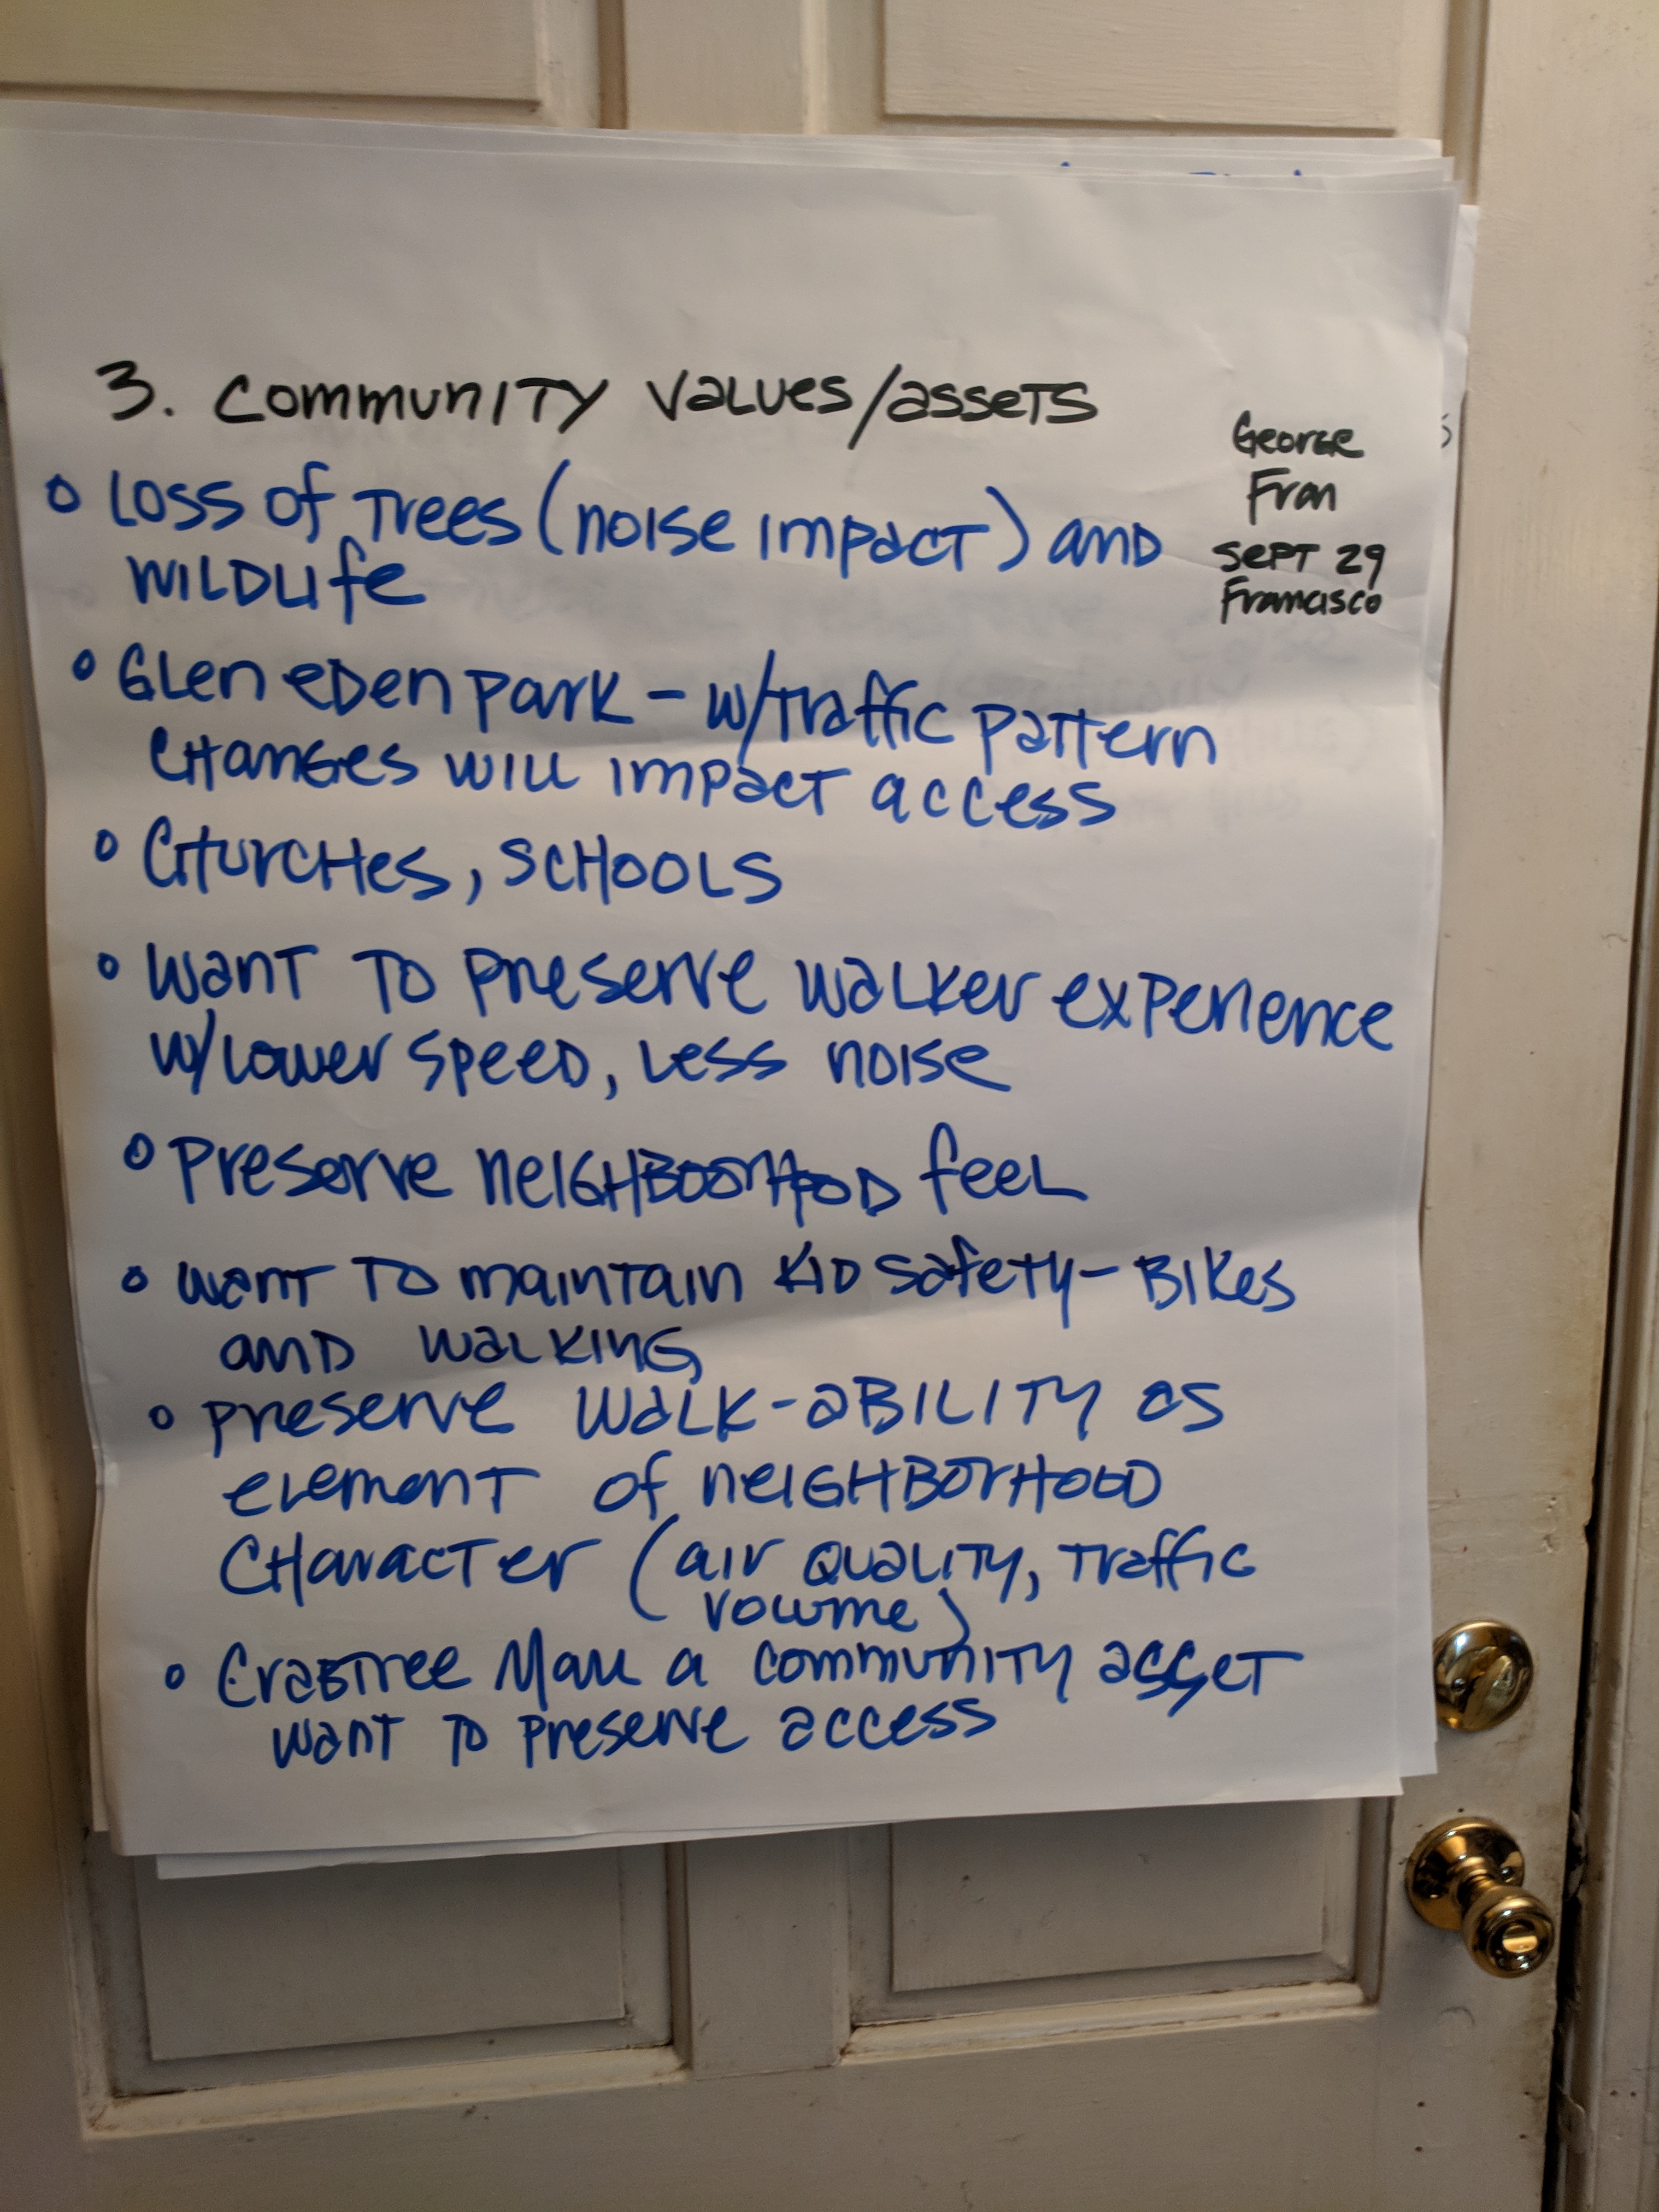 3. Community Values/assets
George
Fran
Sept 29
Francisco
o Loss of Trees (noise impact) and
Wildlife
o Glen Eden Park - w/traffic pattern
changes will impact access
o Churches, Schools
o Want to preserve walker experience
w/lower speed, less noise
o Preserve neighborhood feel
o want to maintain kid safety - Bikes
and walking
o preserve walk-ability as
element of neighborhood
character (air quality, traffic
volume)
o Crabtree Mall a community asset
want to preserve access